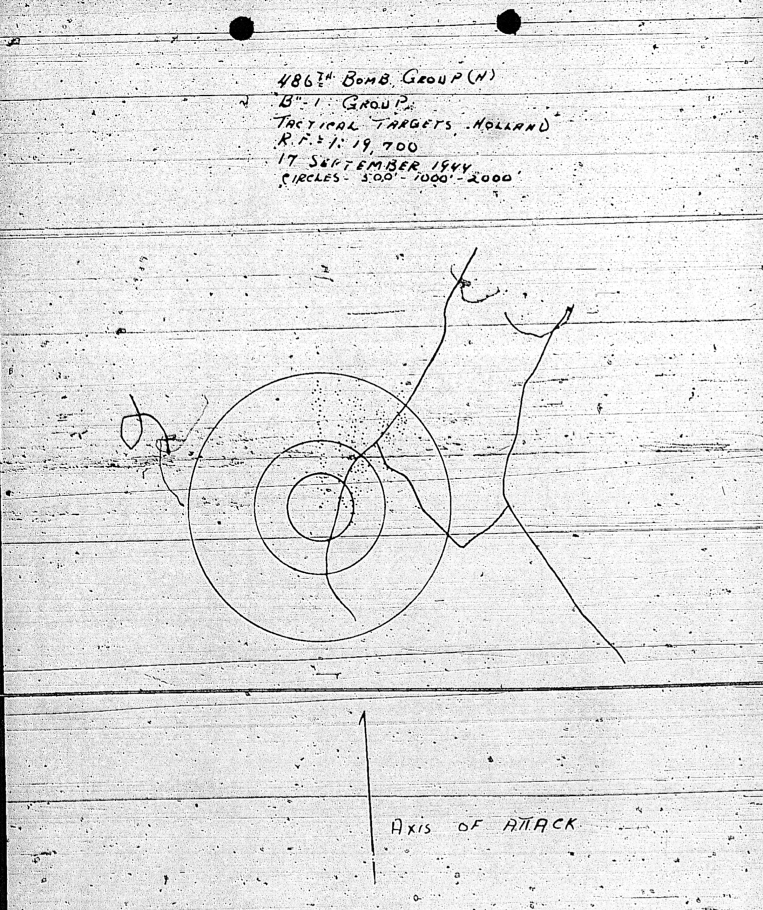 486TH BOMB. GROUP (H)
"B"-1 GROUP
TACTICAL TARGETS, HOLLAND
R.F. = 1: 19,700
17 SEPTEMBER 1944
CIRCLES - 500' - 1000' - 2000'
AXIS OF ATTACK